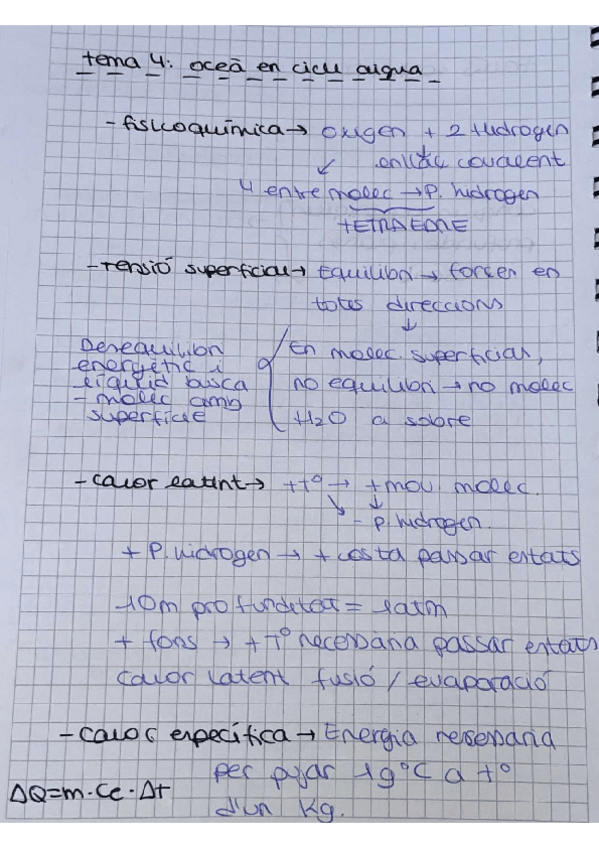 tema 4: oceà en cicle aigua
- fisicoquímica → oxigen + 2 Hidrogen
↙ enllaç covalent
4 entre molec → P. hidrogen
TETRAEDRE
- Tensió superficial → Equilibri → forces en
totes direccions
↓
Desequilibri
energètic i
líquid busca
- molec amb
superfície
En molec. superficials,
no equilibri → no molec
H2O a sobre
- calor latent → ++Tº → + mov. molec.
- P. hidrogen.
+ P. hidrogen → + costa passar estats
10m profunditat = 1atm
+ fons → + Tº necessària passar estats
calor latent fusió / evaporació
- calor específica → Energia necessària
per pujar 1gºC a tº
d'un Kg.
ΔQ=m·Ce·Δt